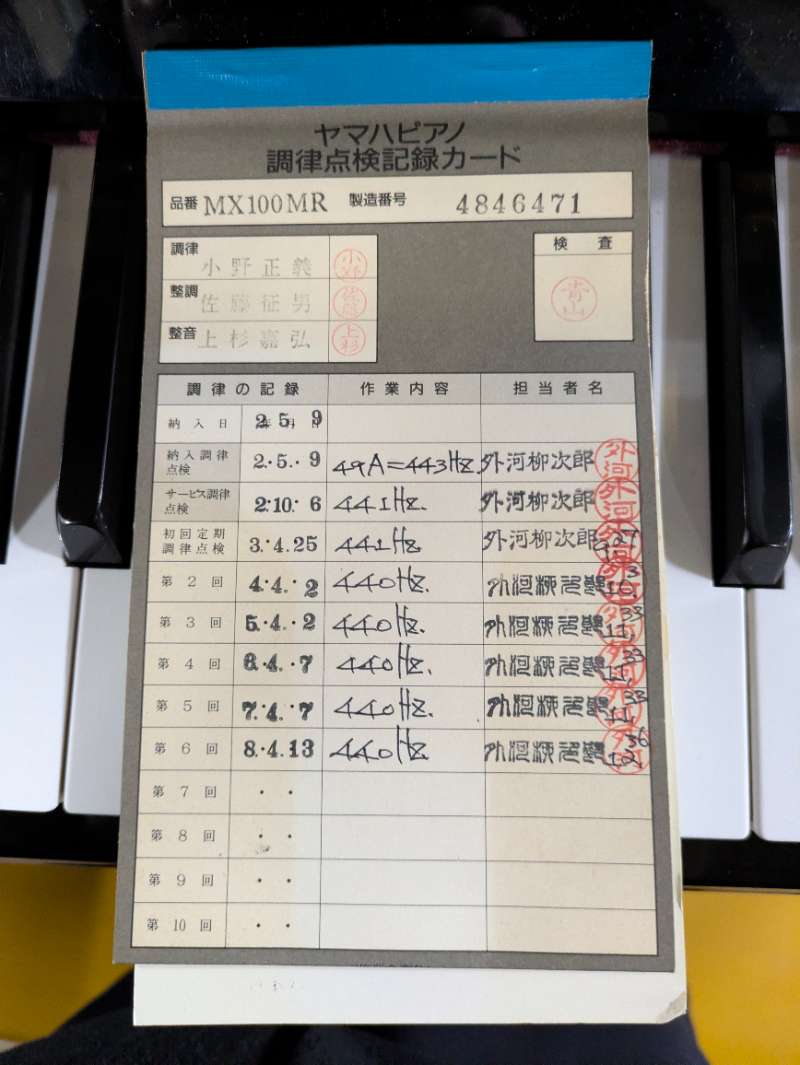 ヤマハピアノ
調律点検記録カード
品番 MX100MR 製造番号 4846471
調律 小野正義 小野
整調 佐藤征男 佐藤
整音 上杉嘉弘 上杉
検査
青山
調律の記録 作業内容 担当者名
納入日 2.5.9
納入調律点検 2.5.9 49A=443Hz 外河柳次郎 外河
サービス調律点検 2.10.6 441Hz. 外河柳次郎 外河
初回定期調律点検 3.4.25 441Hz 外河柳次郎
第2回 4.4.2 440Hz.
第3回 5.4.2 440Hz.
第4回 6.4.7 440Hz.
第5回 7.4.7 440Hz.
第6回 8.4.13 440Hz
第7回 . .
第8回 . .
第9回 . .
第10回 . .